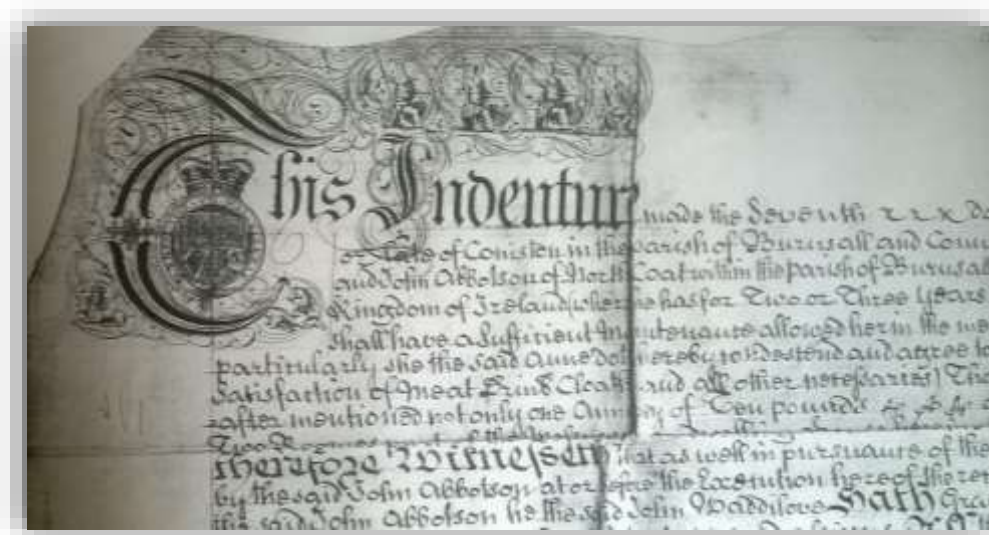 This Indenture made the Seventh
or late of Coniston in the parish of Burnsall and
and John Abbotson of North Coat within the parish of Burnsal
Kingdom of Ireland where he has for Two or Three Years
shall have a sufficient Maintenance allowed her in the
particularly she the said Anne doth hereby condescend and agree to
Satisfaction of Meat Drink Cloaths and all other necessaries)
after mentioned not only one Annuity of Ten pounds
Two
therefore Witnesseth that as well in pursuance of the
by the said John Abbotson at or before the Execution hereof the
the said John Abbotson he the said John Waddilove Hath